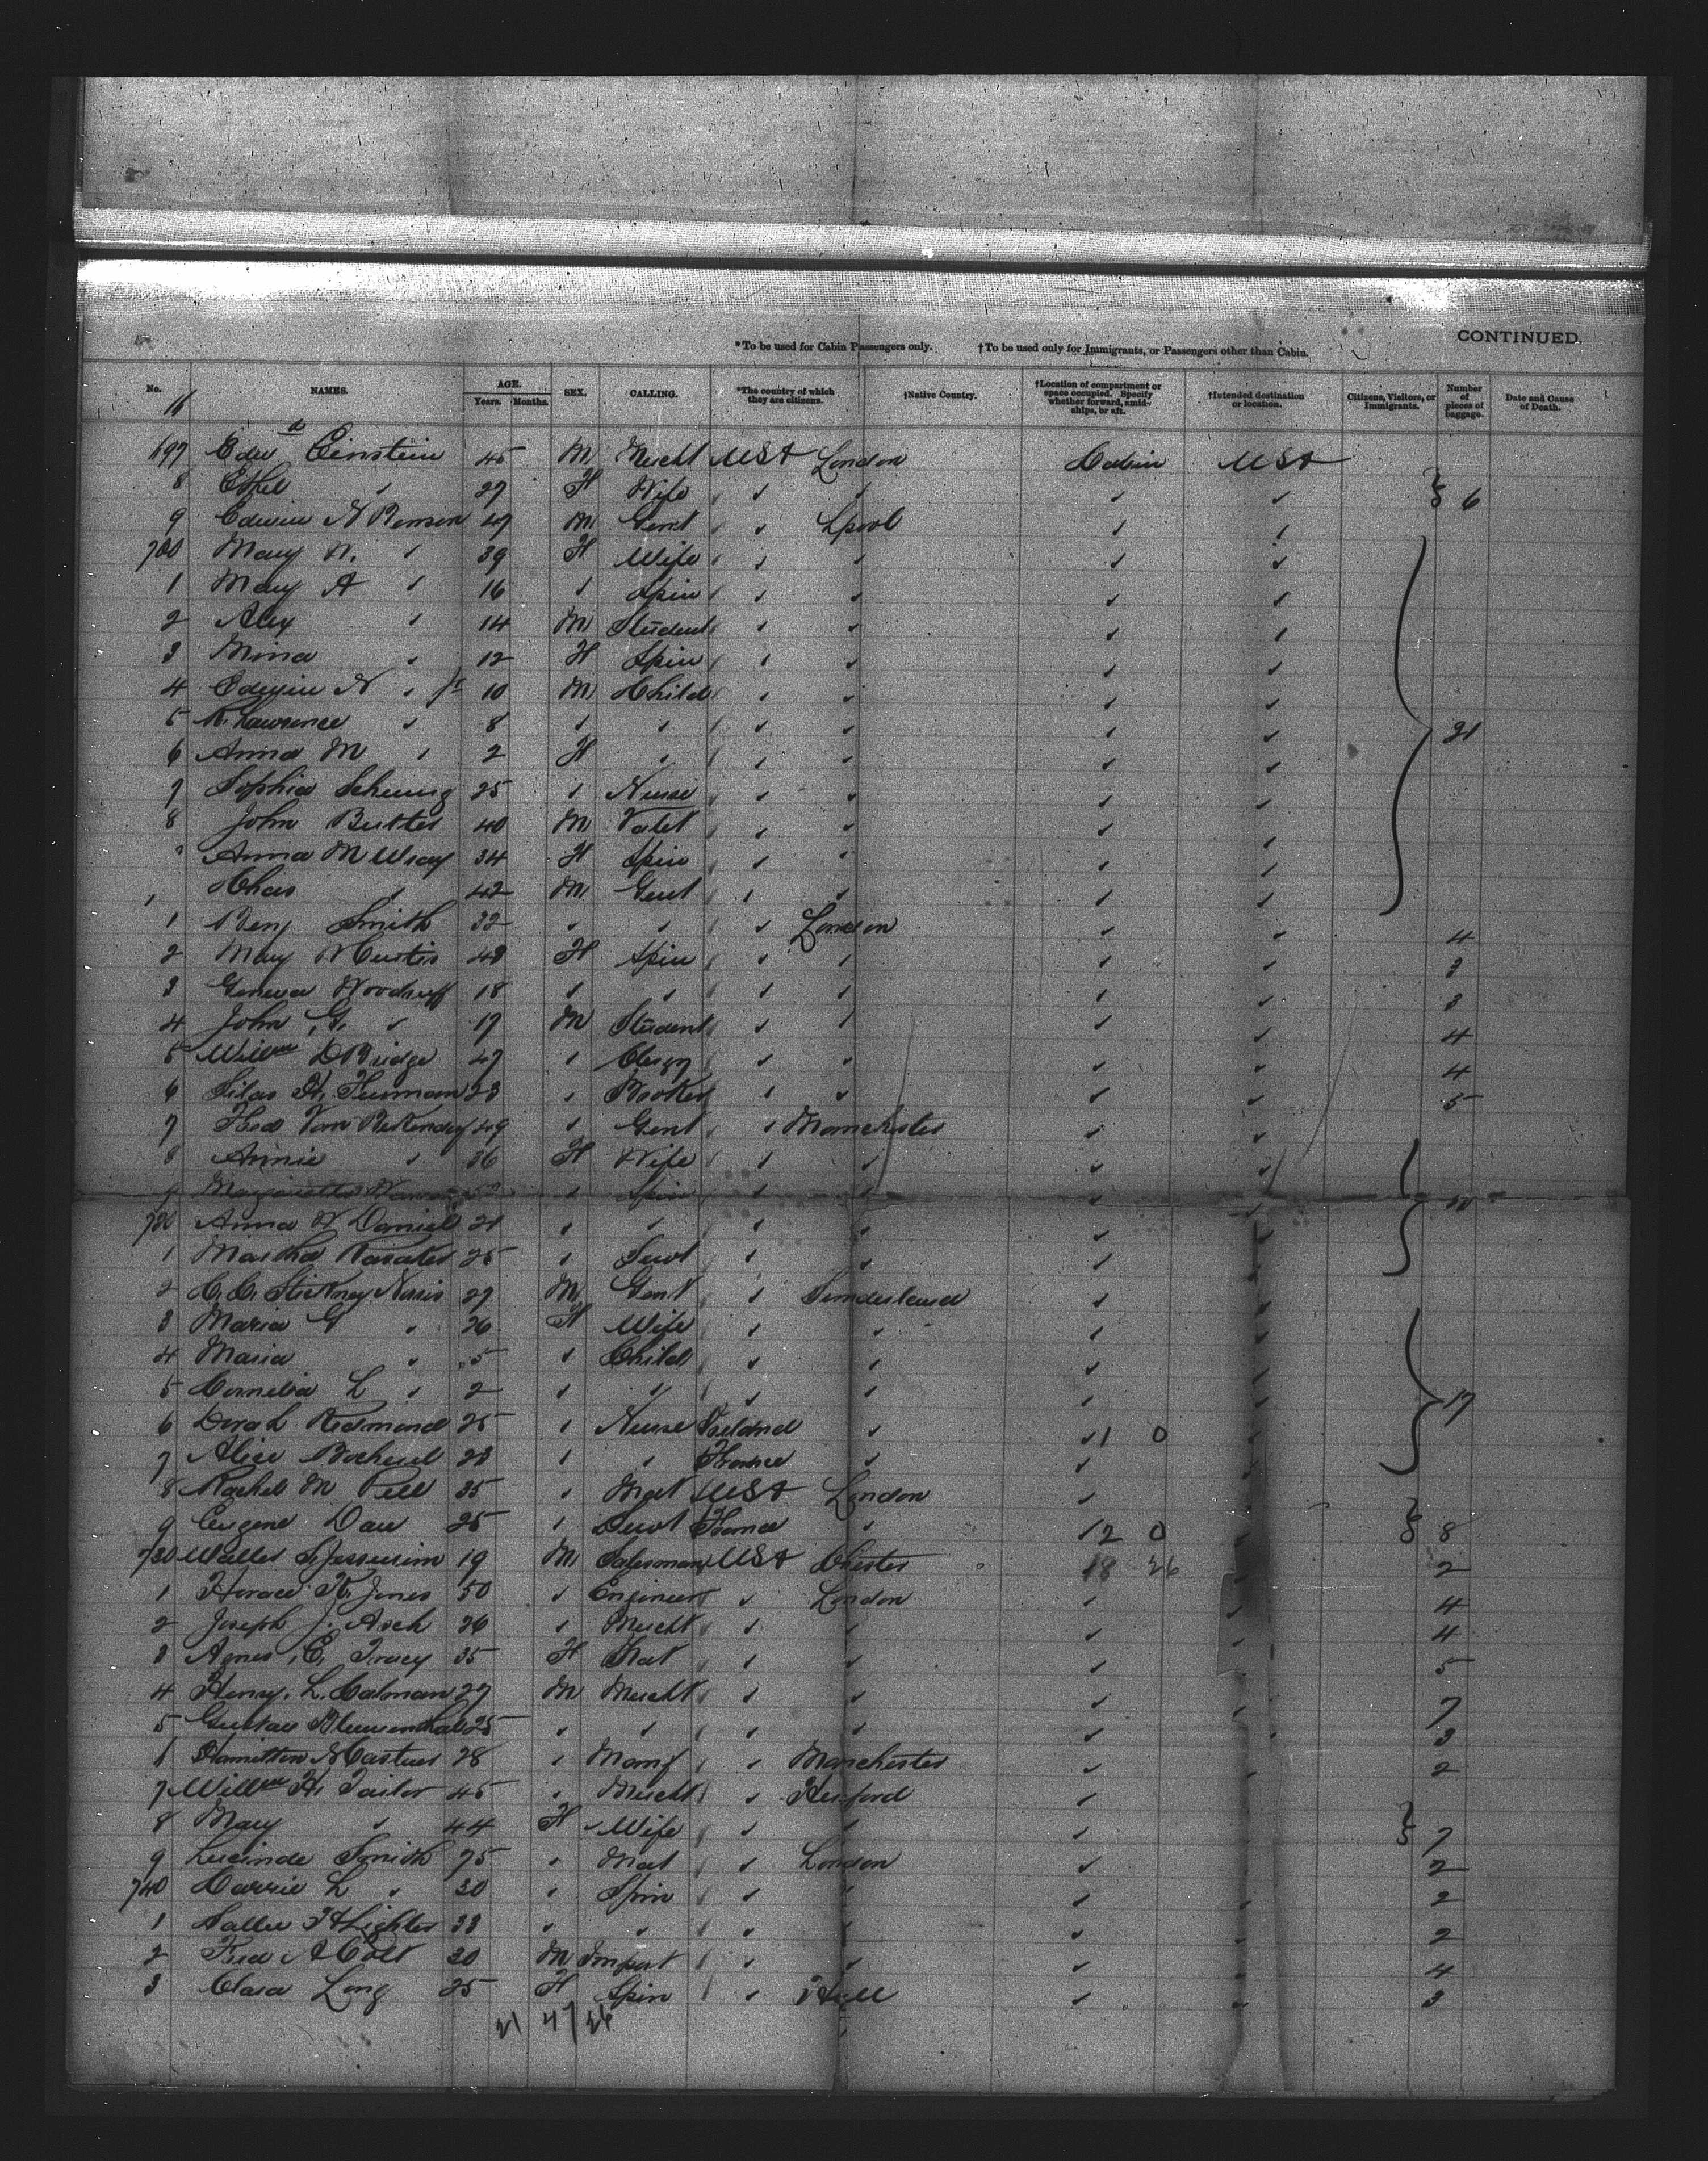 CONTINUED.
*To be used for Cabin Passengers only. †To be used only for Immigrants, or Passengers other than Cabin.
No. NAMES. AGE. Years. Months. SEX. CALLING. *The country of which they are citizens. †Native Country. †Location of compartment or space occupied. Specify whether forward, amidships, or aft. †Intended destination or location. Citizens, Visitors, or Immigrants. Number of pieces of baggage. Date and Cause of Death.
16
697 Edwd Einstein 45 M Mercht USA London Cabin USA
8 Ethel " 27 F Wife " " " " 6
9 Edwin N Benson 47 M Gent " Lpool " "
700 Mary N. " 39 F Wife " " " "
1 Mary A " 16 " Spin " " " "
2 Alex " 14 M Student " " " "
3 Mina " 12 F Spin " " " "
4 Edwin N " Jr 10 M Child " " " "
5 R. Lawrence " 8 " " " " " " 21
6 Anna M " 2 F " " " " "
7 Sophia 25 " Nurse " " " "
8 John Butler 40 M Valet " " " "
Anna M Wray 34 F Spin " " " "
Chas " 42 M Gent " " " "
1 Benj Smith 32 " " " London " " 4
2 Mary 48 F Spin " " " " 3
3 Geneva Woodruff 18 " " " " " " 3
4 John G. " 17 M Student " " " " 4
5 Willm D Bridge 47 " Clergy " " " " 4
6 Silas H. Furman 28 " Broker " " " " 5
7 Fred Van 49 " Gent " Manchester " "
8 Annie " 36 F Wife " " " "
9 " Spin " " "
720 Anna W Daniel 21 " " " " " "
1 Martha 25 " Servt " " "
2 C. C. Stickney Norris 27 M Gent " Sunderland " "
3 Maria G " 26 F Wife " " " "
4 Maria " 5 " Child " " " "
5 Cornelia L " 2 " " " " " " 17
6 Dora L Redmond 25 " Nurse Ireland " " 1 0 "
7 Alice 23 " " France " " "
8 Rachel M Pell 35 " Mat USA London "
9 Eugene 25 " Servt France " 12 0 " 8
730 Walter 19 M Salesman USA Chester 18 26 " 2
1 Horace K. Jones 50 " Engineer " London " " 4
2 Joseph J. Asch 26 " Mercht " " " " 4
3 Agnes C. Tracy 35 F Mat " " " " 5
4 Henry L. Calman 27 M Mercht " " " " 7
5 Gustav Blumenthal 25 " " " " " " 3
6 Hamilton 28 " Manf " Manchester " " 2
7 Willm H. Tailor 45 " Mercht " "
8 Mary " 44 F Wife " " " 7
9 Lucinda Smith 75 " Mat " London " 2
740 Carrie L " 30 " Spin " " " " 2
1 Sallie 33 " " " " " " 2
2 Fred A Colt 30 M Import " " " " 4
3 Clara Long 25 F Spin " Hull " " 3
21 47 26